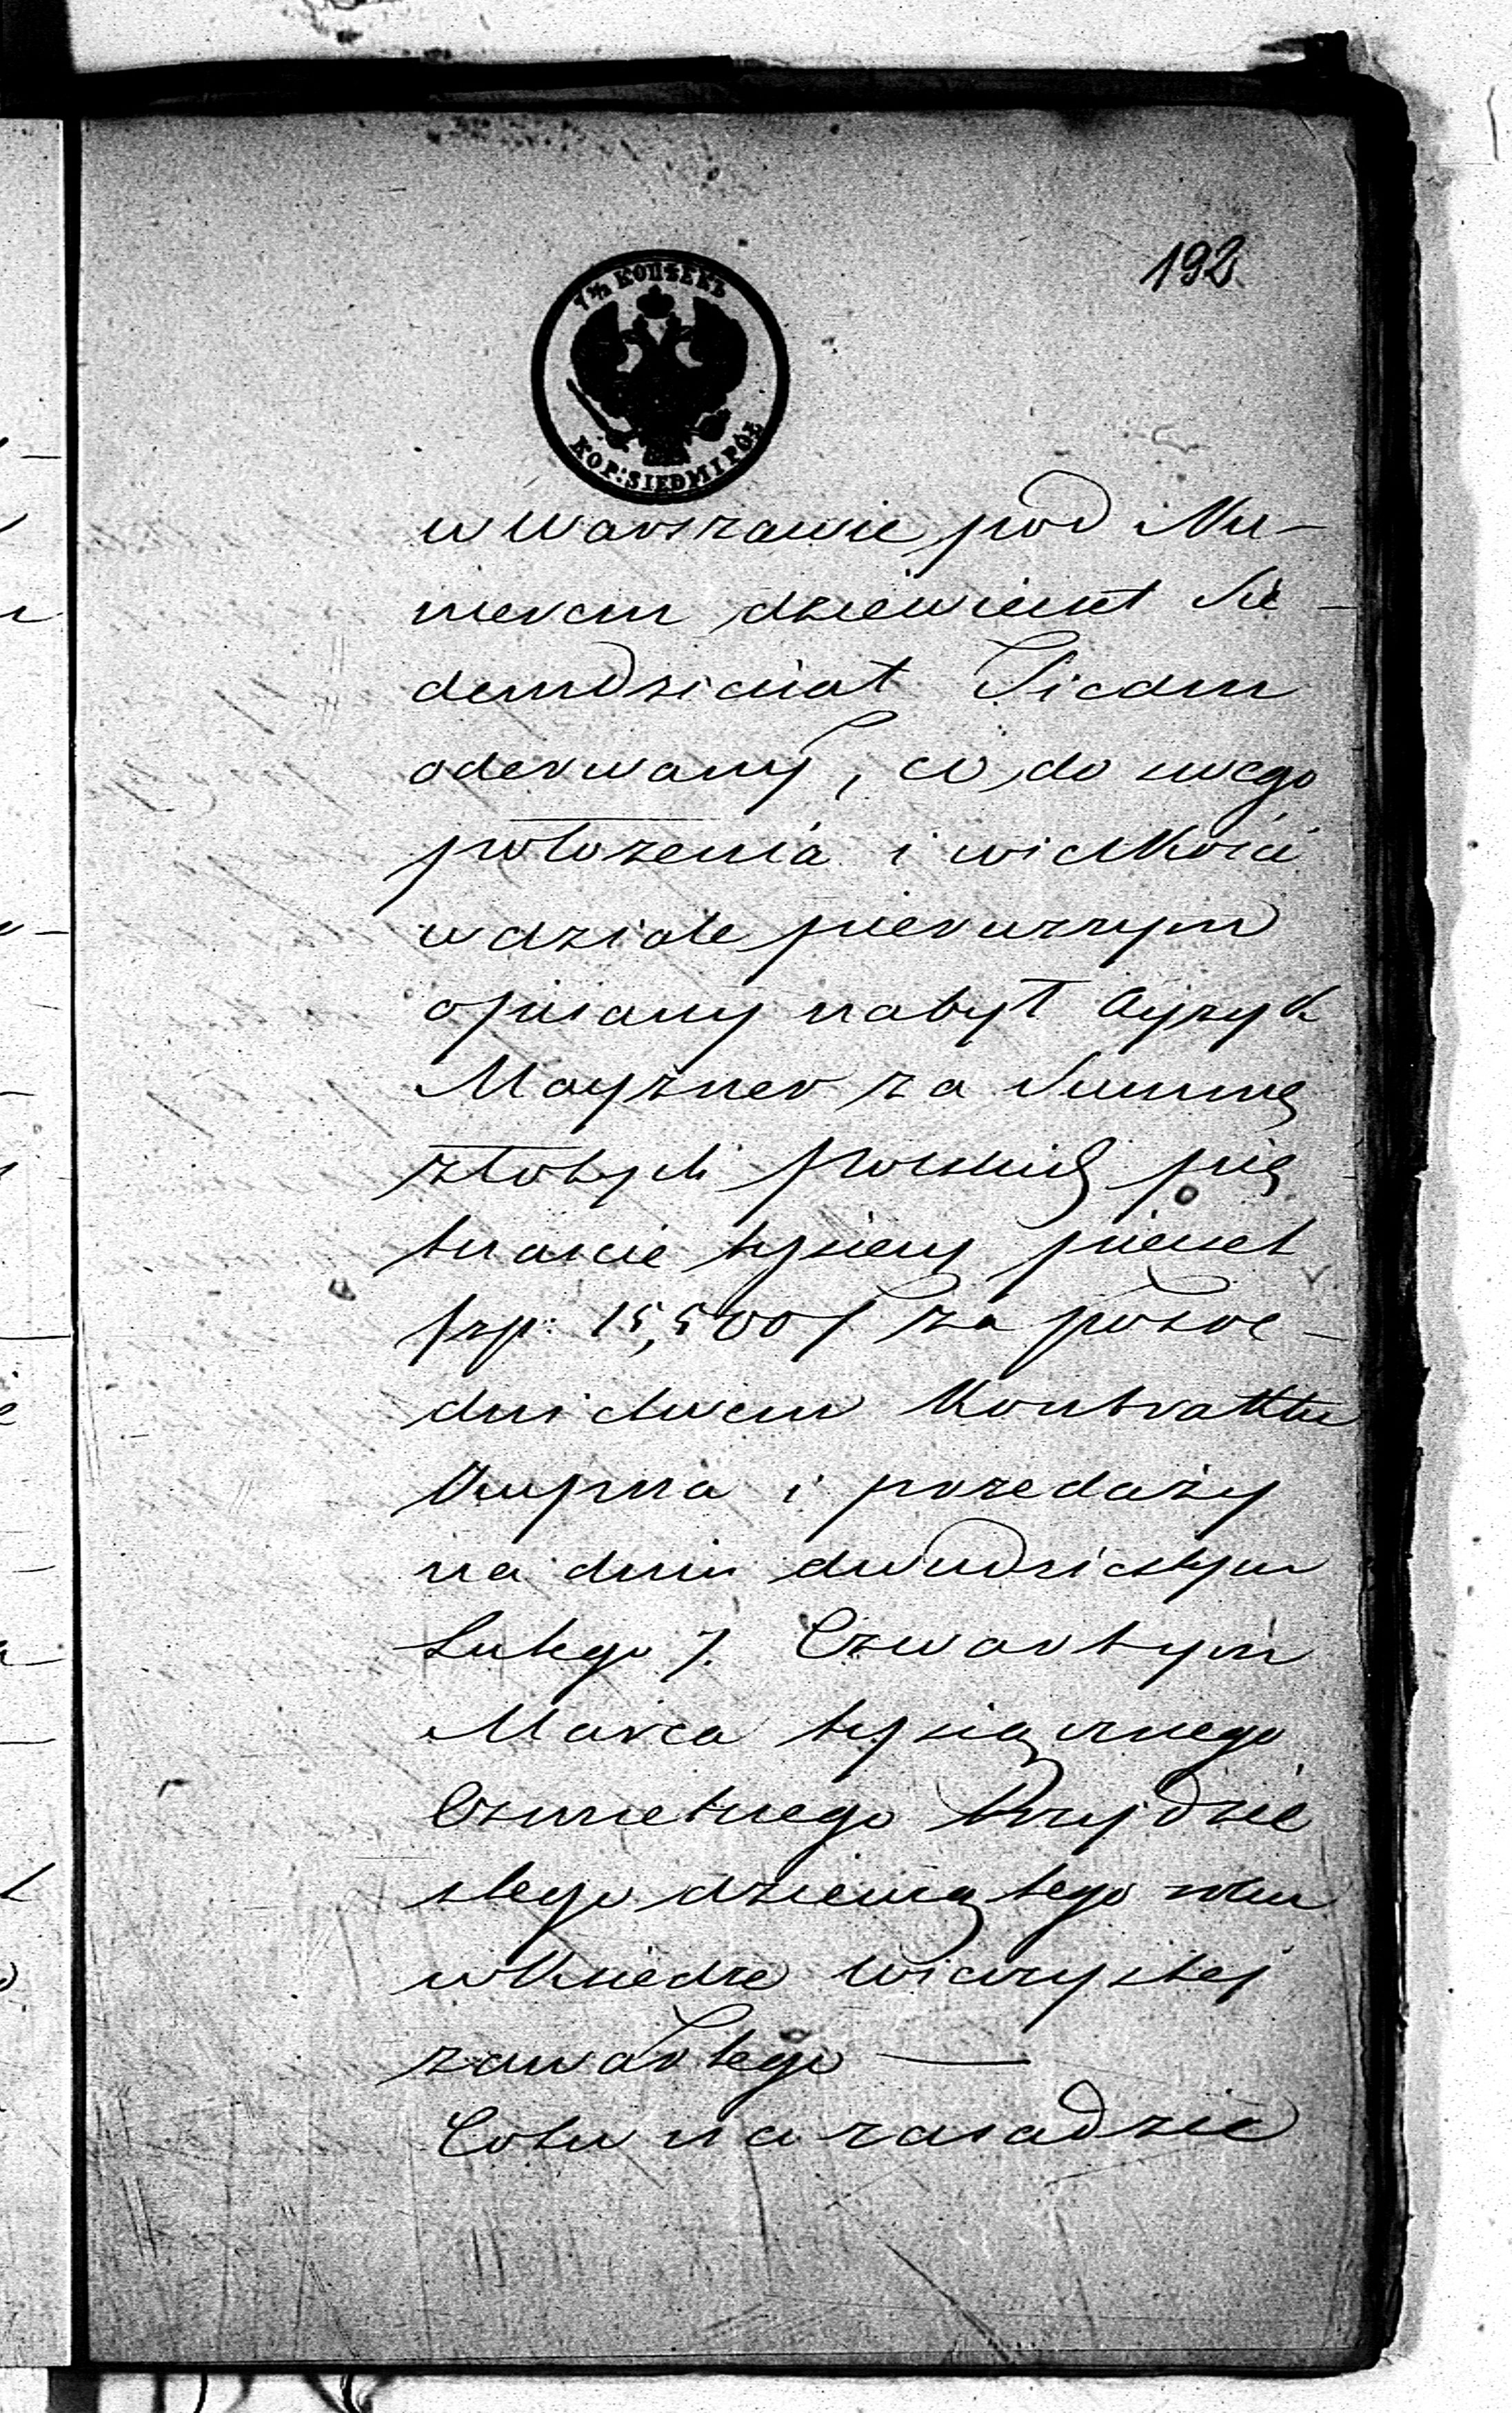 192
7½ КОПѢЕКЪ
KOP: SIEDM I PÓŁ
w Warszawie pod Nu-
merem dziewięset Sie-
demdziesiąt Siedm
oderwany, co do swego
położenia i wielkości
w dziale pierwszym
opisany nabył Ayzyk
Mayzner za Summę
złotych polskich pię
tnaście tysięcy pięćset
/zp: 15,500/ za pośre-
dnictwem Kontraktu
Kupna i przedaży
na dniu dwudziestym
Lutego /. Czwartym
Marca tysiącznego
Ośmsetnego trzydzie
stego dziewiątego roku
w Księdze wieczystej
zawartego —
Co tu na zasadzie